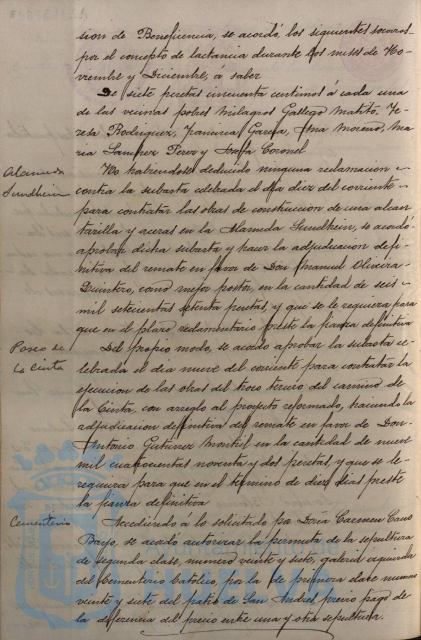 sion de Beneficencia, se acordó, los siguientes socorros
por el concepto de lactancia durante los meses de No-
viembre y Diciembre, a saber
De siete pesetas cincuenta centimos á cada una
de las vecinas pobres Milagros Gallego Matito, Te-
resa Rodriguez, Francisca Garcia, Ana Moreno, Ma-
ria Sanchez Perez y Josefa Coronel
Alameda
Sundheim
No habiendose deducido ninguna reclamacion
contra la subasta celebrada el dia diez del corriente
para contratar las obras de construccion de una alcan
tarilla y aceras en la Alameda Sundheim, se acordó
aprobar dicha subasta y hacer la adjudicacion defi-
nitiva del remate en favor de Don Manuel Oliveira
Quintero, como mejor postor, en la cantidad de seis
mil setecientas setenta pesetas, y que se le requiera para
que en el plazo reglamentario preste la fianza definitiva
Paseo de
la Cinta
Del propio modo, se acordo aprobar la subasta ce-
lebrada el dia nueve del corriente para contratar la
ejecucion de las obras del trozo tercero del camino de
la Cinta, con arreglo al proyecto reformado, haciendo la
adjudicacion definitiva del remate en favor de Don
Antonio Gutierrez en la cantidad de nueve
mil cuatrocientas noventa y dos pesetas, y que se le
requiera para que en el termino de diez dias preste
la fianza definitiva
Cementerio
Accediendo a lo solicitado por Doña Carmen Cano
Bayo, se acordó autorizar la permuta de la sepultura
de segunda clase, numero veinte y siete, galeria izquierda
del Cementerio Católico, por la de primera clase numero
veinte y siete del patio de San Andres previo pago de
la diferencia del precio entre una y otra sepultura.